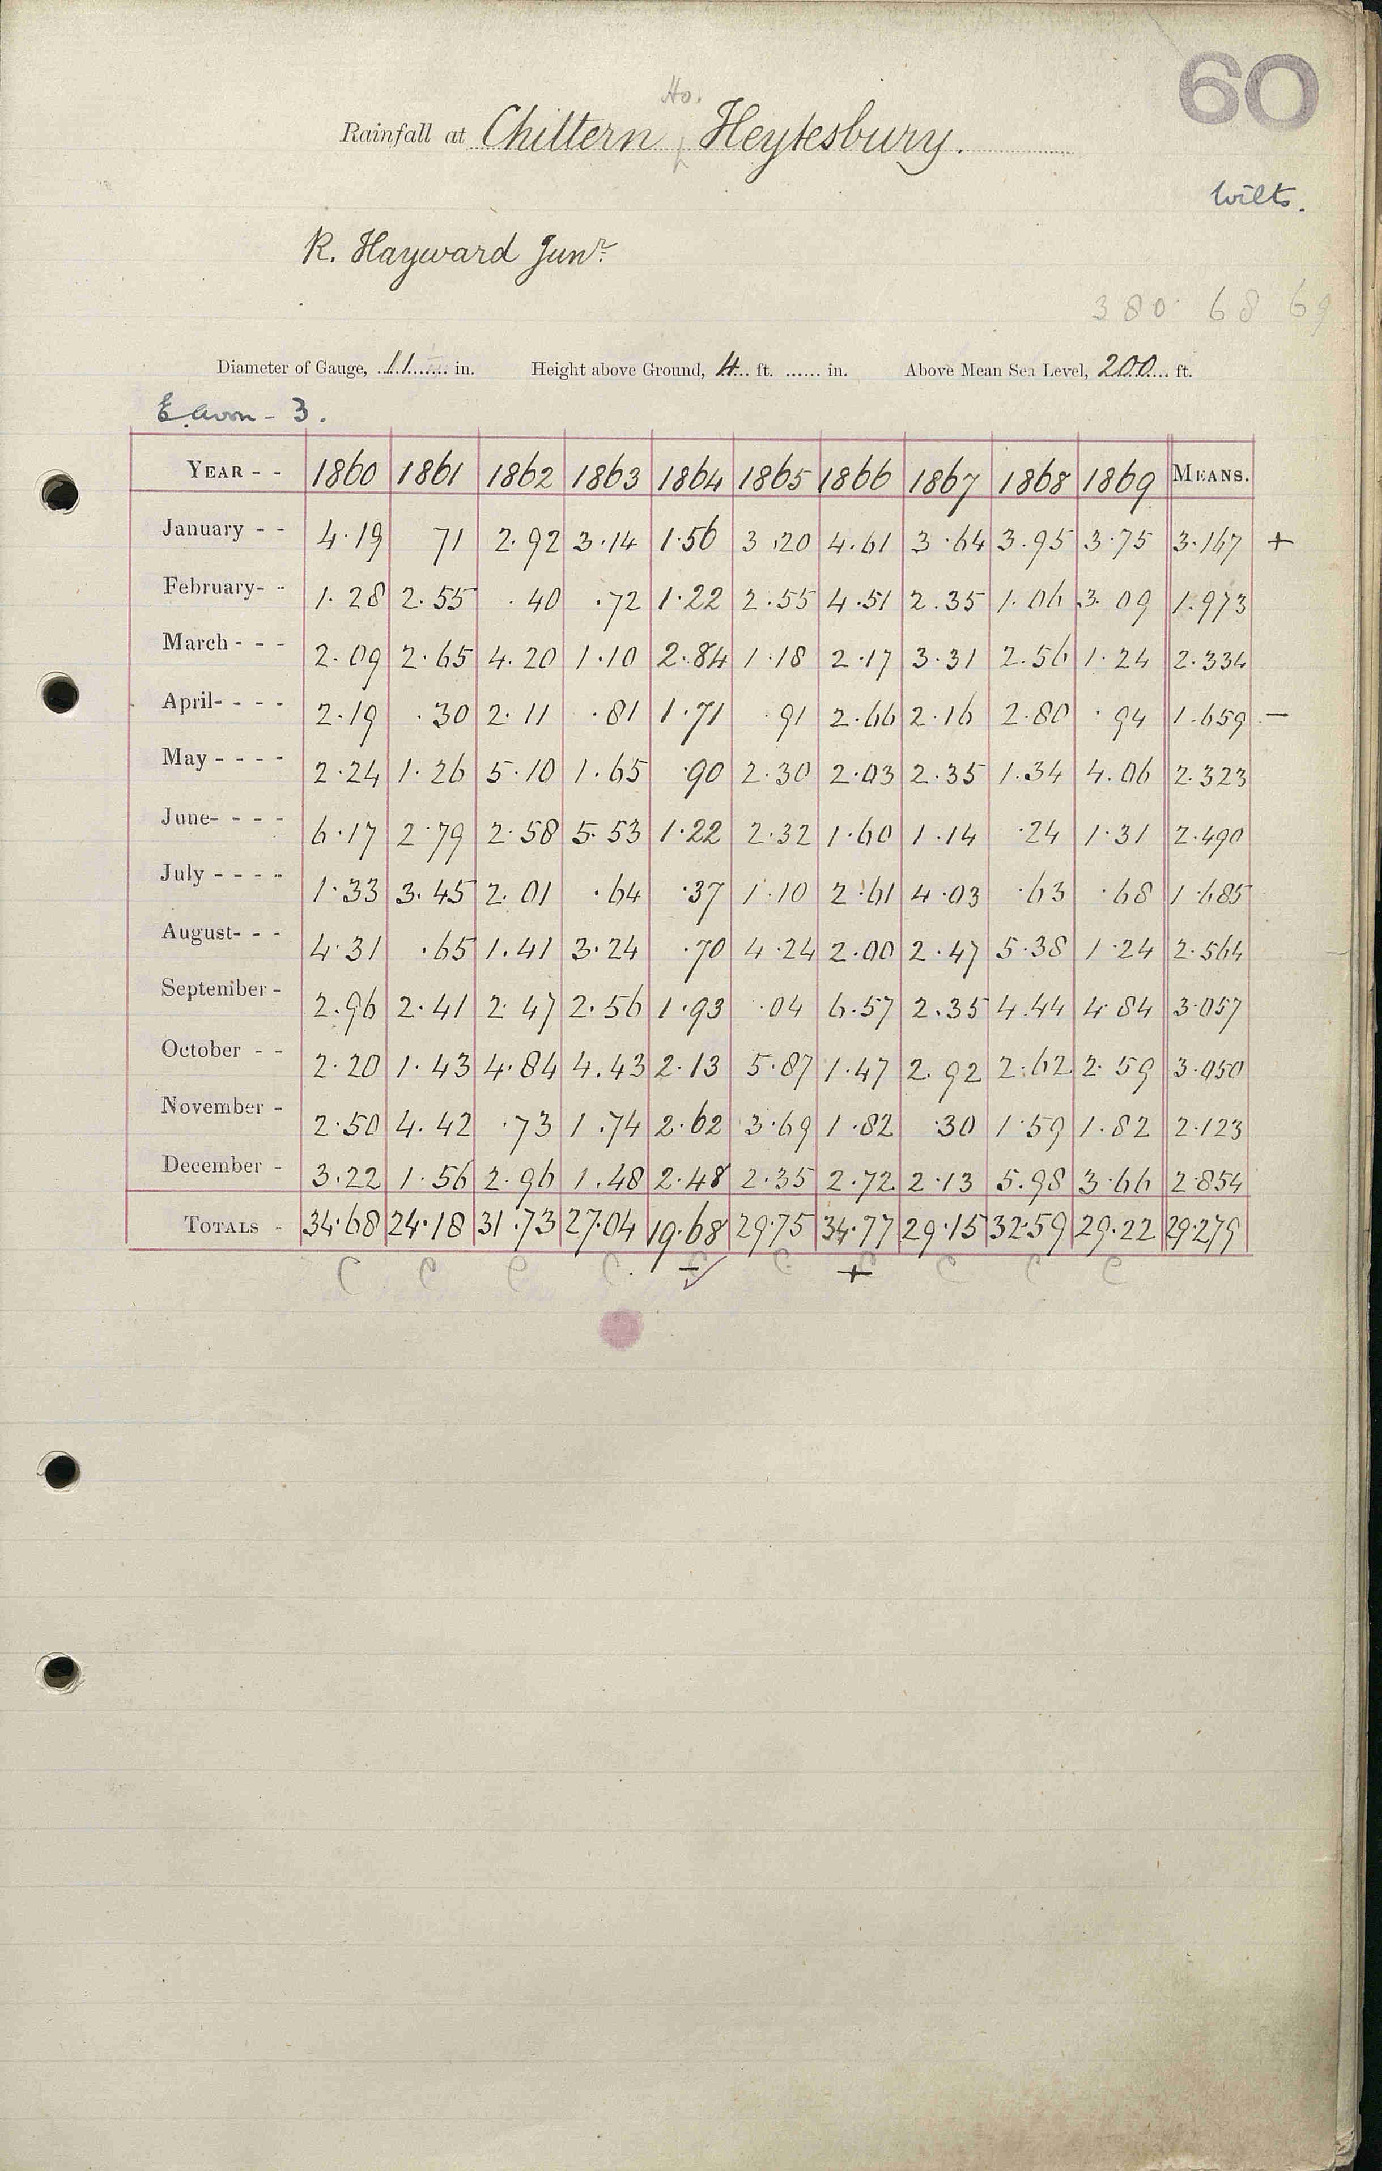 60
Ho.
Rainfall at Chiltern Heytesbury.
Wilts.
R. Hayward Junr.
380 68 69
Diameter of Gauge, 11 in. Height above Ground, 4 ft. in. Above Mean Sea Level, 200 ft.
E. Avon - 3.
YEAR - - 1860 1861 1862 1863 1864 1865 1866 1867 1868 1869 MEANS.
January - - 4.19 71 2.92 3.14 1.56 3.20 4.61 3.64 3.95 3.75 3.167 +
February- - 1.28 2.55 .40 .72 1.22 2.55 4.51 2.35 1.06 3.09 1.973
March - - - 2.09 2.65 4.20 1.10 2.84 1.18 2.17 3.31 2.56 1.24 2.334
April- - - - 2.19 .30 2.11 .81 1.71 .91 2.66 2.16 2.80 .94 1.659 -
May - - - - 2.24 1.26 5.10 1.65 .90 2.30 2.03 2.35 1.34 4.06 2.323
June- - - - 6.17 2.79 2.58 5.53 1.22 2.32 1.60 1.14 .24 1.31 2.490
July - - - - 1.33 3.45 2.01 .64 .37 1.10 2.61 4.03 .63 .68 1.685
August- - - 4.31 .65 1.41 3.24 .70 4.24 2.00 2.47 5.38 1.24 2.564
September - 2.96 2.41 2.47 2.56 1.93 .04 6.57 2.35 4.44 4.84 3.057
October - - 2.20 1.43 4.84 4.43 2.13 5.87 1.47 2.92 2.62 2.59 3.050
November - 2.50 4.42 .73 1.74 2.62 3.69 1.82 .30 1.59 1.82 2.123
December - 3.22 1.56 2.96 1.48 2.48 2.35 2.72 2.13 5.98 3.66 2.854
TOTALS - 34.68 24.18 31.73 27.04 19.68 29.75 34.77 29.15 32.59 29.22 29.279
C C C C C C C C C C
- +